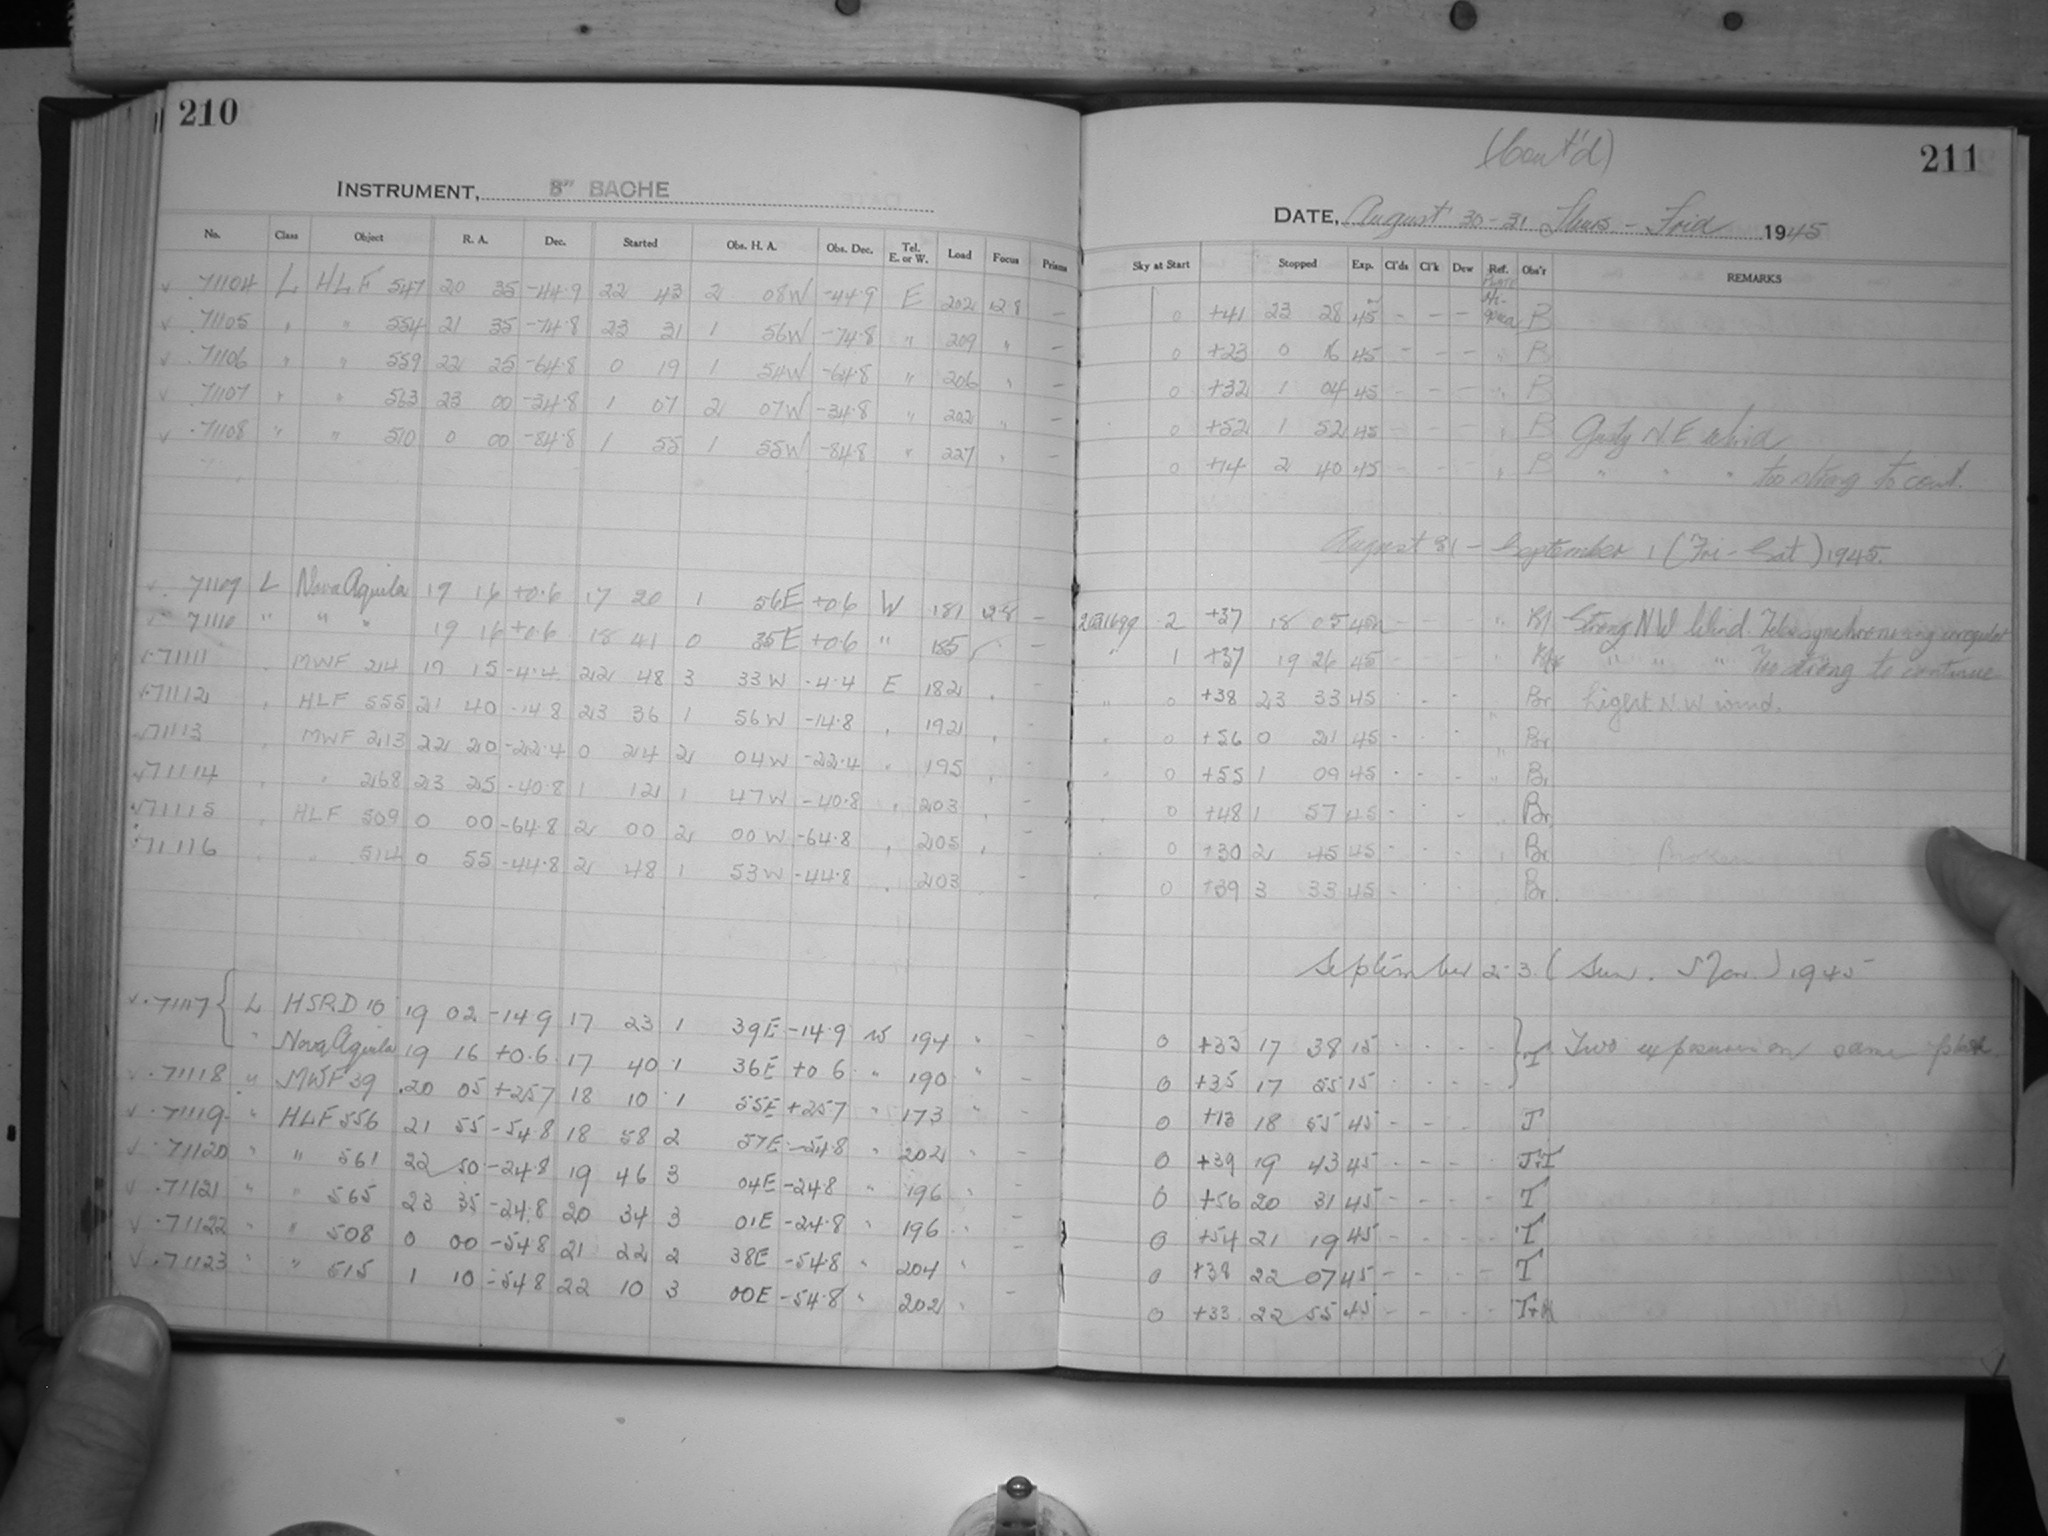 210
INSTRUMENT, 8" BACHE
No. Class Object R. A. Dec. Started Obs. H. A. Obs. Dec. Tel. E. or W. Load Focus Prisms
71104 L HLF 547 20 35 -44.9 22 43 2 08W -44.9 E 202 128 —
71105 " " 554 21 35 -74.8 23 31 1 56W -74.8 " 209 " —
71106 " " 559 22 25 -64.8 0 19 1 54W -64.8 " 206 " —
71107 " " 563 23 00 -34.8 1 07 2 07W -34.8 " 202 " —
71108 " " 510 0 00 -84.8 1 55 1 55W -84.8 " 227 " —
71109 L Nova Aquila 19 16 +0.6 17 20 1 56E +0.6 W 181 128 —
71110 " " " 19 16 +0.6 18 41 0 35E +0.6 " 185 —
71111 MWF 214 19 15 -4.4 22 48 3 33W -4.4 E 182
71112 HLF 555 21 40 -14.8 23 36 1 56W -14.8 192
71113 MWF 213 22 20 -22.4 0 24 2 04W -22.4 195 -
71114 " 268 23 25 -40.8 1 12 1 47W -40.8 203 -
71115 HLF 509 0 00 -64.8 2 00 2 00W -64.8 205
71116 " 514 0 55 -44.8 2 48 1 53W -44.8 203 -
71117 L HSRD 10 19 02 -14.9 17 23 1 39E -14.9 W 194 " -
" Nova Aquila 19 16 +0.6 17 40 1 36E +0.6 " 190 " -
71118 " MWF 39 20 05 +25.7 18 10 1 55E +25.7 " 173 " -
71119 " HLF 556 21 55 -54.8 18 58 2 57E -54.8 " 202 " -
71120 " " 561 22 50 -24.8 19 46 3 04E -24.8 " 196 " -
71121 " " 565 23 35 -24.8 20 34 3 01E -24.8 " 196 " -
71122 " " 508 0 00 -54.8 21 22 2 38E -54.8 " 204 " -
71123 " " 515 1 10 -54.8 22 10 3 00E -54.8 " 202 " -
(Cont'd)
211
DATE, August 30-31 Thurs - Frid 1945
Sky at Start Stopped Exp. Cl'ds Cl'k Dew Ref. Obs'r REMARKS
0 +41 23 28 45 - - - B
0 +23 0 16 45 - - - " B
0 +32 1 04 45 - - - " B
0 +52 1 52 45 - - - " B Gusty N.E wind
0 +14 2 40 45 - - - " B " " " too strong to cont.
August 31 - September 1 (Fri - Sat) 1945.
2 +37 18 05 45 - - - " Strong N W Wind. Tele synchronising irregular
" 1 +37 19 26 45 - - - " " " " Too strong to continue
" 0 +38 23 33 45 - - - Br Light N W wind.
" 0 +56 0 21 45 - - - " Br
" 0 +55 1 09 45 - - - " Br
0 +48 1 57 45 - - - " Br
0 +30 2 45 45 - - - " Br Broken
0 +39 3 33 45 - - - Br
September 2-3 (Sun. Mon.) 1945
0 +33 17 38 15 - - - - T Two exposures on same plate
0 +35 17 55 15 - - - -
0 +13 18 55 45 - - - J
0 +39 19 43 45 - - - - J+T
0 +56 20 31 45 - - - - T
0 +54 21 19 45 - - - T
0 +38 22 07 45 - - - - T
0 +33 22 55 45 - - - -